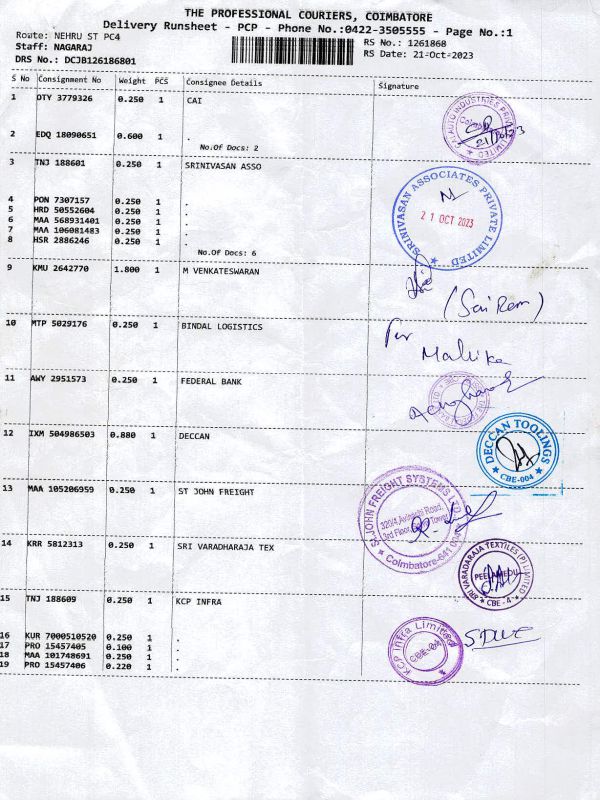 THE PROFESSIONAL COURIERS, COIMBATORE
Delivery Runsheet - PCP - Phone No.:0422-3505555 - Page No.:1
Route: NEHRU ST PC4
RS No.: 1261868
Staff: NAGARAJ
RS Date: 21-Oct-2023
DRS No.: DCJB126186801
S No Consignment No Weight PCS Consignee Details Signature
1 DTY 3779326 0.250 1 CAI
21/10/23
2 EDQ 18090651 0.600 1 .
No.Of Docs: 2
3 TNJ 188601 0.250 1 SRINIVASAN ASSO
SRINIVASAN ASSOCIATES PRIVATE LIMITED
21 OCT 2023
4 PON 7307157 0.250 1 .
5 HRD 50552604 0.250 1 .
6 MAA 568931401 0.250 1 .
7 MAA 106081483 0.250 1 .
8 HSR 2886246 0.250 1 .
No.Of Docs: 6
9 KMU 2642770 1.800 1 M VENKATESWARAN
(Sai Ram)
10 MTP 5029176 0.250 1 BINDAL LOGISTICS
for
Mallika
11 AWY 2951573 0.250 1 FEDERAL BANK
12 IXM 504986503 0.880 1 DECCAN
DECCAN TOOLINGS
CBE-004
13 MAA 105206959 0.250 1 ST JOHN FREIGHT
ST.JOHN FREIGHT SYSTEMS LTD
320/4, Avinashi Road,
3rd Floor,
Coimbatore-641 004
14 KRR 5812313 0.250 1 SRI VARADHARAJA TEX
SRI VARADARAJA TEXTILES (P) LIMITED
PEELAMEDU
CBE-4
15 TNJ 188609 0.250 1 KCP INFRA
KCP Infra Limited
CBE-04
16 KUR 7000510520 0.250 1 .
17 PRO 15457405 0.100 1 .
18 MAA 101748691 0.250 1 .
19 PRO 15457406 0.220 1 .